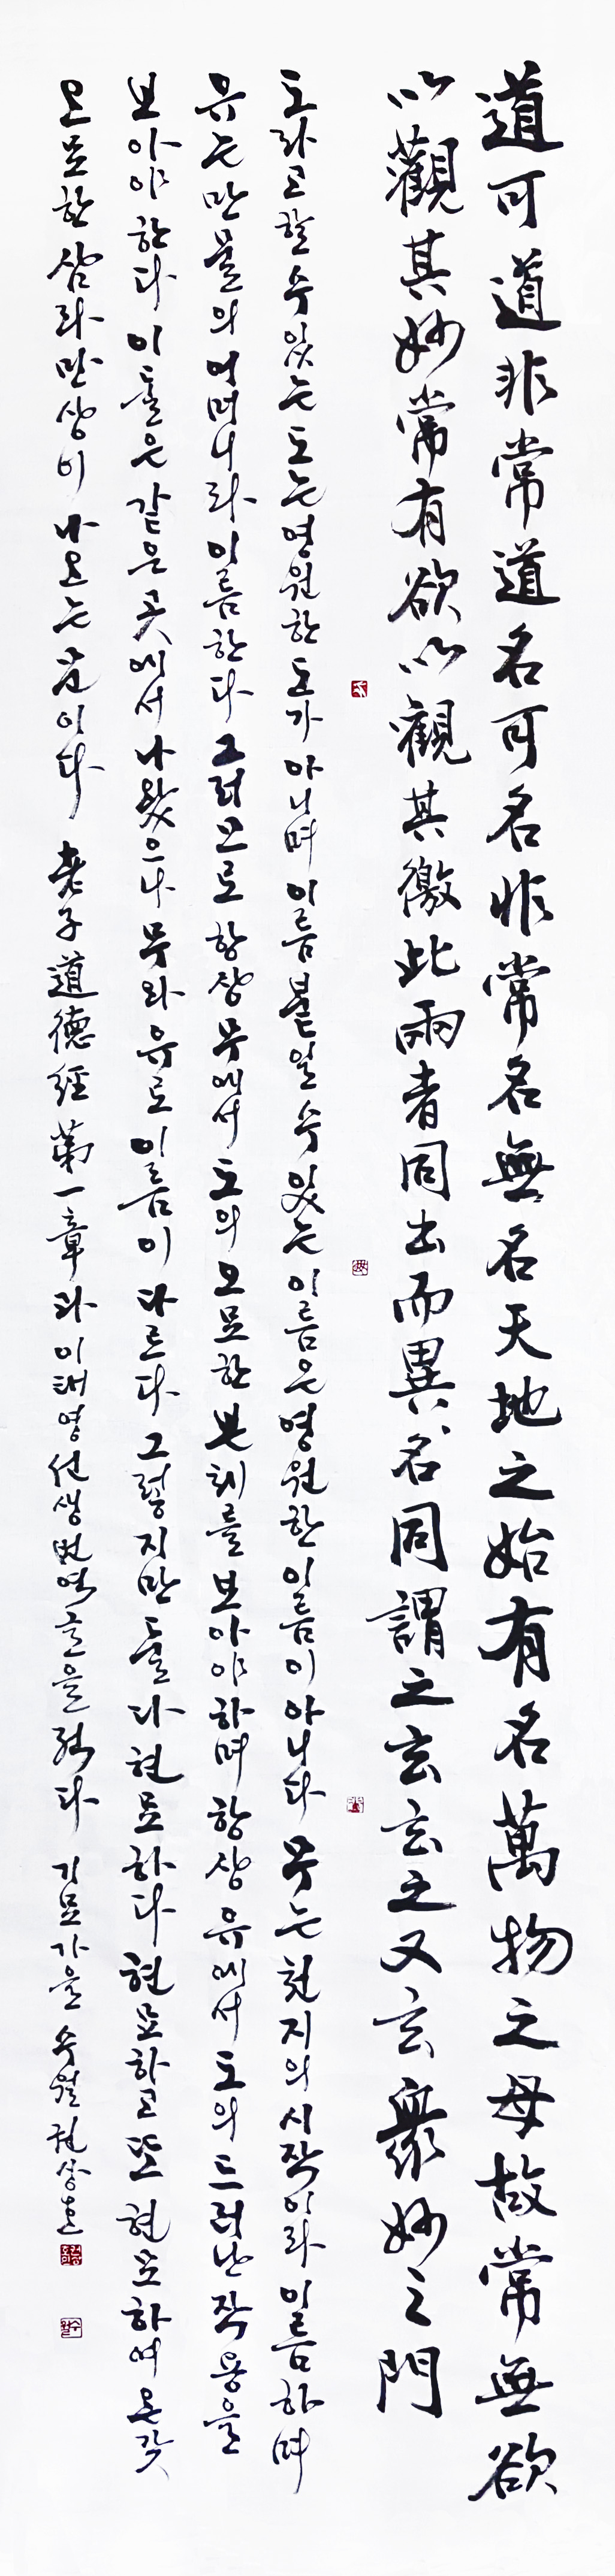 道可道非常道名可名非常名無名天地之始有名萬物之母故常無欲
以觀其妙常有欲以觀其徼此兩者同出而異名同謂之玄玄之又玄衆妙之門
도라고 할 수 있는 도는 영원한 도가 아니며 이름 붙일 수 있는 이름은 영원한 이름이 아니다 무는 천지의 시작이라 이름하며
유는 만물의 어머니라 이름한다 그러므로 항상 무에서 도의 오묘한 본체를 보아야 하며 항상 유에서 도의 드러난 작용을
보아야 한다 이 둘은 같은 곳에서 나왔으나 무와 유로 이름이 다르다 그렇지만 둘 다 현묘하다 현묘하고 또 현묘하여 온갖
오묘한 삼라만상이 나오는 문이다 老子道德經 第一章과 이태영선생 번역글을 적다 기묘가을